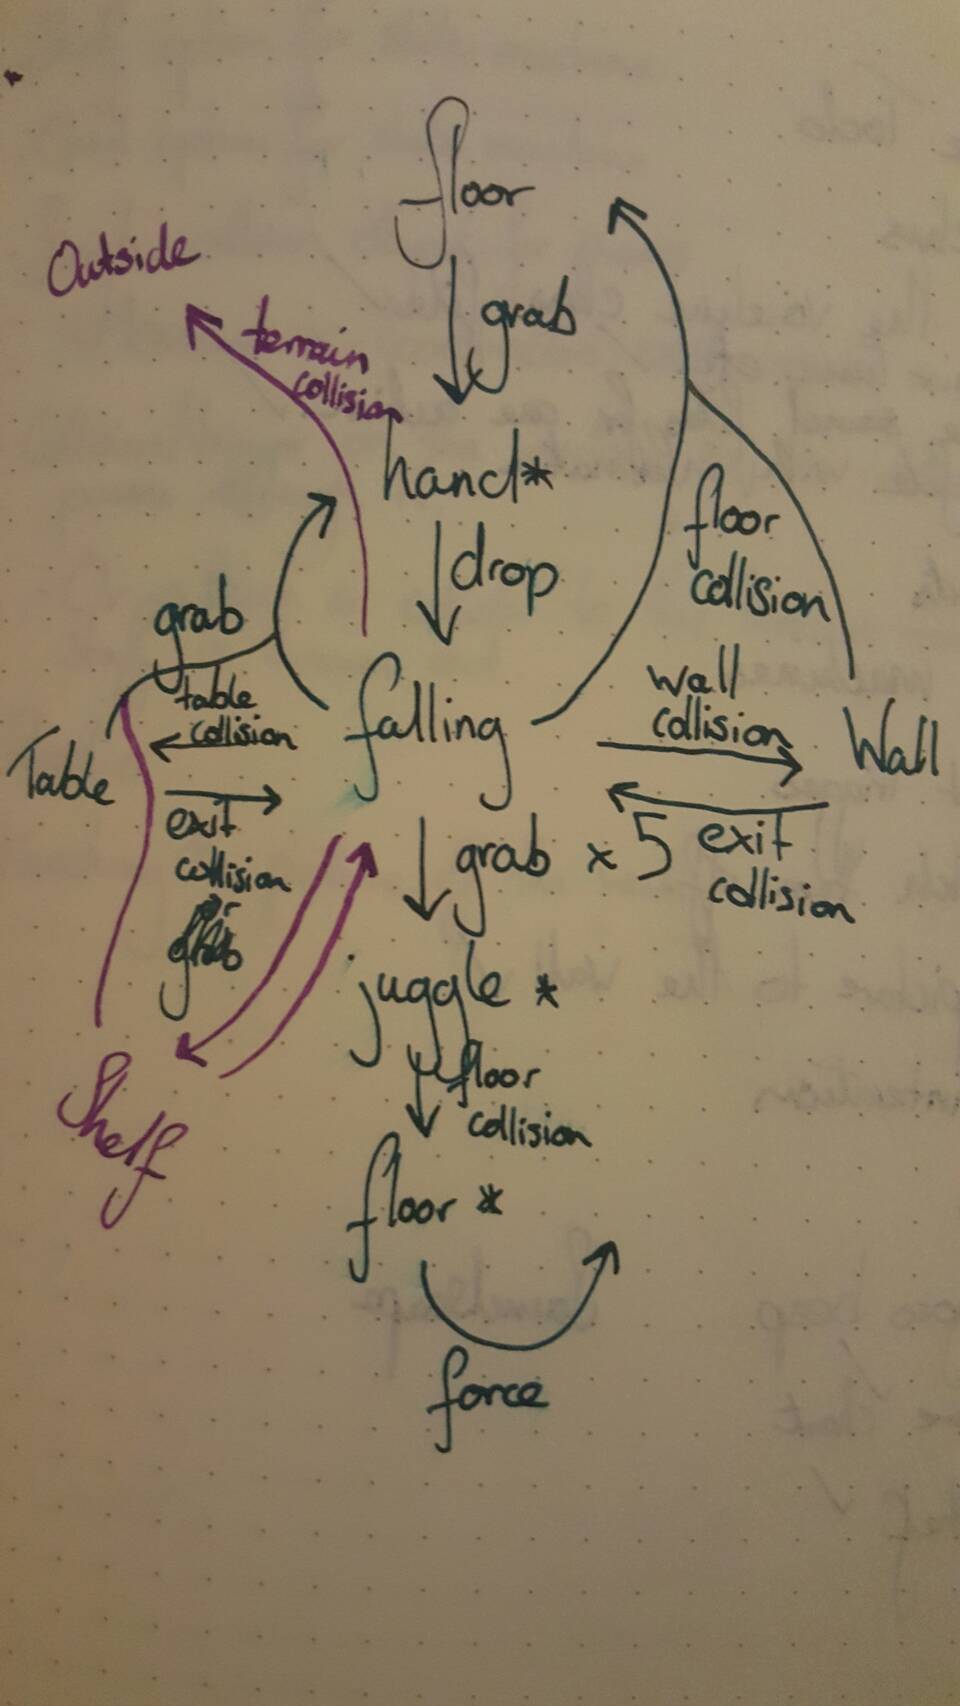 floor
grab
Outside
terrain
collision
hand*
drop
floor
collision
grab
table
collision
falling
wall
collision
Wall
Table
exit
collision
or
grab
grab x 5
exit
collision
juggle *
floor
collision
Shelf
floor *
force